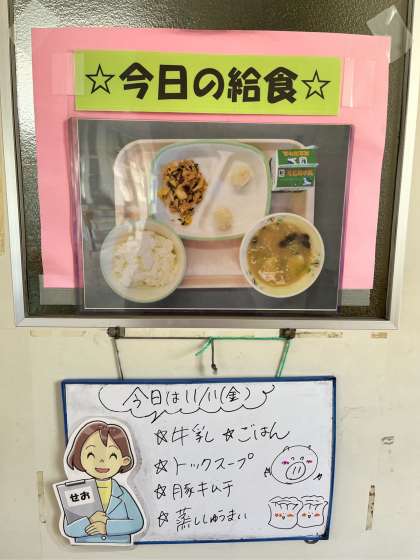 ☆今日の給食☆
今日は11/11(金)
☆牛乳 ☆ごはん
☆トックスープ
☆豚キムチ
☆蒸ししゅうまい
せお